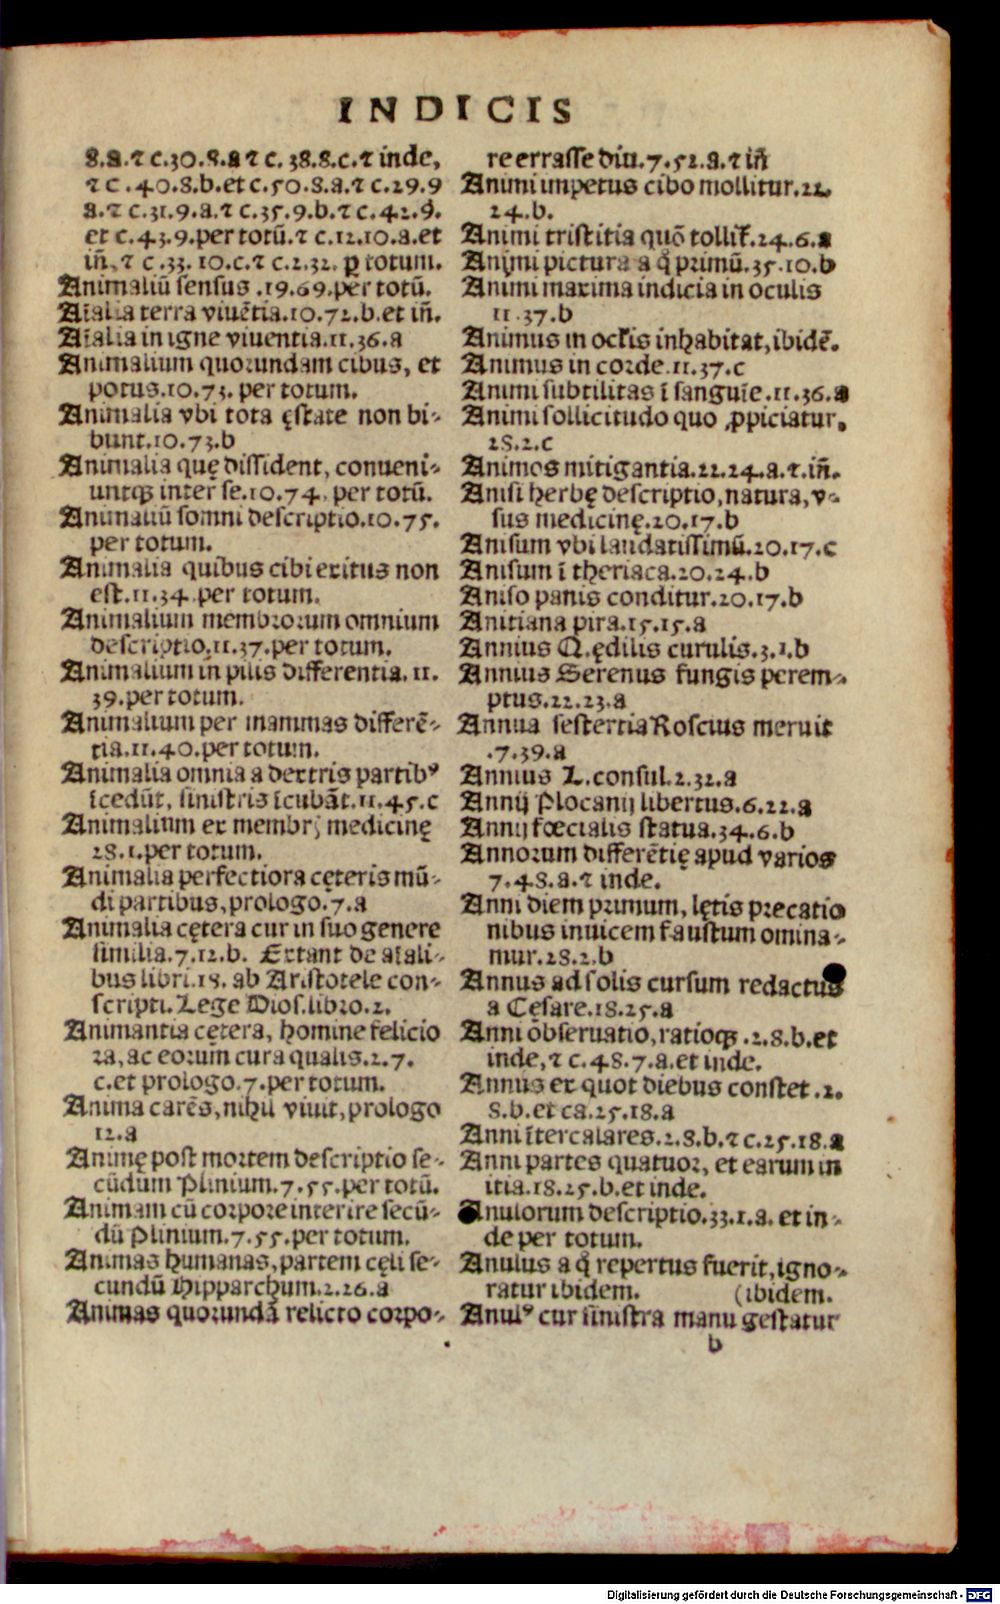 INDICIS
8.a.⁊ c.30.8.a ⁊ c. 38.8.c.⁊ inde,
⁊ c.40.8.b.et c.50.8.a.⁊ c.29.9
a.⁊ c.31.9.a.⁊ c.35.9.b.⁊ c.42.9.
et c.43.9.per totũ.⁊ c.12.10.a.et
iñ.⁊ c.33.10.c.⁊ c.2.32. ꝑ totum.
Animaliũ sensus.19.69.per totũ.
Aĩalia terra viuẽtia.10.72.b.et iñ.
Aĩalia in igne viuentia.11.36.a
Animalium quorundam cibus, et
potus.10.73.per totum.
Animalia vbi tota ęstate non bi-
bunt.10.73.b
Animalia quę dissident, conueni-
untqꝫ inter se.10.74.per totũ.
Animaliũ somni descriptio.10.75.
per totum.
Animalia quibus cibi exitus non
est.11.34.per totum.
Animalium membrorum omnium
descriptio.11.37.per totum.
Animalium in pilis differentia.11.
39.per totum.
Animalium per mammas differẽ-
tia.11.40.per totum.
Animalia omnia a dextris partibꝰ
ĩcedũt, sinistris ĩcubãt.11.45.c
Animalium ex membrꝭ medicinę
28.1.per totum.
Animalia perfectiora cęteris mũ-
di partibus,prologo.7.a
Animalia cętera cur in suo genere
similia.7.12.b. Extant de aĩali-
bus libri.18. ab Aristotele con-
scripti. Lege Dios.libro.2.
Animantia cętera, homine felicio
ra, ac eorum cura qualis.2.7.
c.et prologo.7.per totum.
Anima carẽs,nihil viuit,prologo
12.a
Animę post mortem descriptio se-
cũdum Plinium.7.55.per totũ.
Animam cũ corpore interire secũ-
dũ Plinium.7.55.per totum.
Animas humanas,partem cęli se-
cundũ Hipparchum.2.26.a
Animas quorundã relicto corpo-
re errasse diu.7.52.a.⁊ iñ
Animi impetus cibo mollitur.22.
24.b.
Animi tristitia quõ tollit̃.24.6.a
Animi pictura a q̃ primũ.35.10.b
Animi maxima indicia in oculis
11.37.b
Animus in oculis inhabitat,ibidẽ.
Animus in corde.11.37.c
Animi subtilitas ĩ sanguĩe.11.36.a
Animi sollicitudo quo ꝓpiciatur.
28.2.c
Animos mitigantia.22.24.a.⁊.iñ.
Anisi herbę descriptio,natura,v-
sus medicinę.20.17.b
Anisum vbi laudatissimũ.20.17.c
Anisum ĩ theriaca.20.24.b
Aniso panis conditur.20.17.b
Anitiana pira.15.15.a
Annius Q.ędilis curulis.3.1.b
Annius Serenus fungis perem-
ptus.22.23.a
Annua sestertia Roscius meruit
.7.39.a
Annius L.consul.2.32.a
Annij Plocanij libertus.6.22.a
Annij fœcialis statua.34.6.b
Annorum differẽtię apud varios
7.48.a.⁊ inde.
Anni diem primum, lętis precatio
nibus inuicem faustum omina-
mur.28.2.b
Annus ad solis cursum redactus
a Cęsare.18.25.a
Anni obseruatio,ratioqꝫ.2.8.b.et
inde,⁊ c.48.7.a.et inde.
Annus ex quot diebus constet.2.
8.b.et ca.25.18.a
Anni ĩtercalares.2.8.b.⁊ c.25.18.a
Anni partes quatuor, et earum in
itia.18.25.b.et inde.
Anulorum descriptio.33.1.a. et in-
de per totum.
Anulus a q̃ repertus fuerit,igno-
ratur ibidem. (ibidem.
Anulꝰ cur sinistra manu gestatur
b
Digitalisierung gefördert durch die Deutsche Forschungsgemeinschaft - DFG